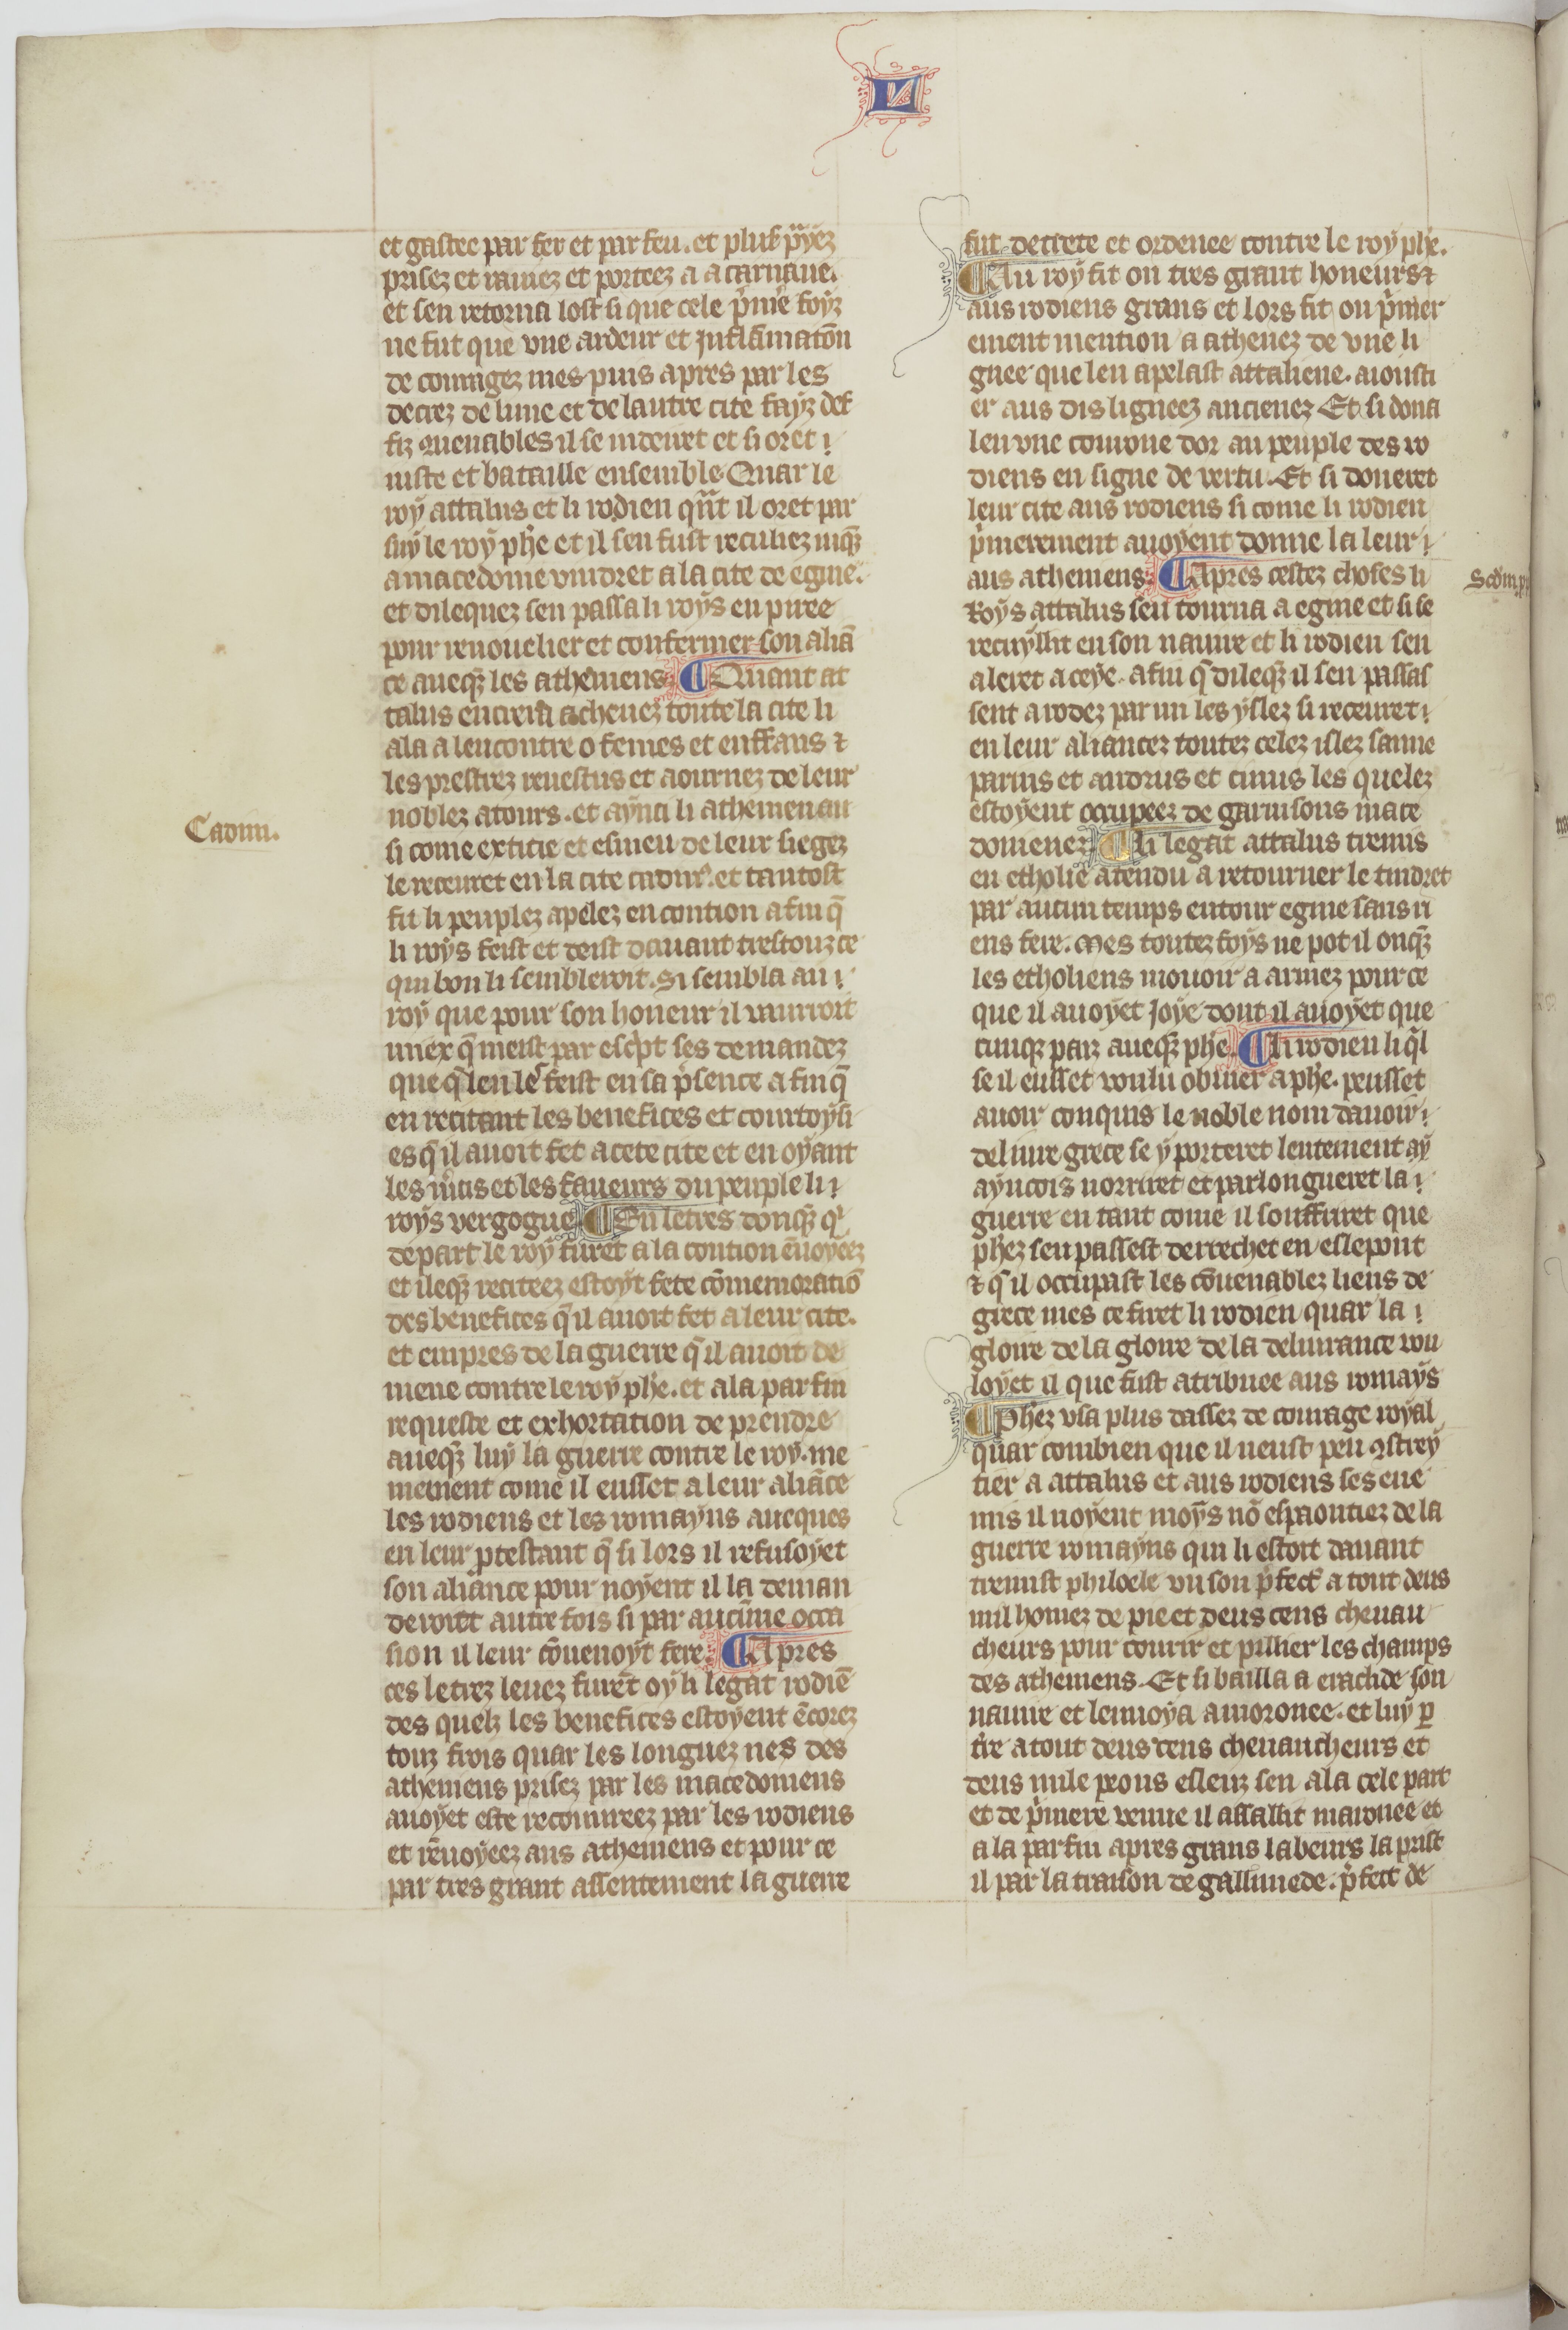 L
et gastee par fer et par feu. et plus͛ p̃yez
prisez et rainez et porteez a acarnane.
et sen retorna lost si que cele p̃mie͛ foyz
ne fut que vne ardeur et Jnflãmatõn
de couragez mes puis apres par les
decrez de lune et de lautre cite fayz def
fiz ꝯuenables il se meneret et si oret i
iuste et bataille ensemble Quar le
roy attalus et li rodien qñt il oret par
suy le roy phe͛ et il sen fust reculiez iusqz
a macedoine vindret a la cite de egine.
et dilequez sen passa li roys en piree
pour renouelier et confermer son aliã
ce aueqz les atheniens ¶ Quant at
talus entreira athenez toute la cite li
ala a lencontre o femes et enffans ⁊
les prestrez reuestus et aournez de leur
noblez atours. et aynci li athenien au
si come extitie et esmeu de leur siegez
le receuret en la cite cadm͛. et tantost
fut li peuplez apelez en contion a fin q̃
li roys feist et deist deuant trestouz ce
qui bon li sembleroit. Si sembla au i
roy que pour son honeur il vauroit
miex q̃ meist par esc͛pt ses demandez
que q̃ len le͛ feist en sa p͛sence a fin q̃
en recitant les benefices et courtoysi
es q̃ il auoit fet a cete cite et en oyant
les m͛cis et les faueurs du peuple li i
roys vergogne ¶ En letres donqz q͛
de part le roy furet a la contion ẽuoyeez
et ileqz reciteez estoyt fete cõmemoratiõ
des benefices q̃ il auoit fet a leur cite.
et empres de la guerre q̃ il auoit de
mene contre le roy phe͛. et a la par fin
requeste et exhortation de prendre
aueqz luy la guerre contre le roy. me
mement come il eusset a leur aliãce
les rodiens et les romayns aueques
en leur ꝓtestant q̃ si lors il refusoyet
son aliance pour noyent il la deman
deroiet autre fois si par aucũne occa
sion il leur cõuenoyt fere. ¶ Apres
ces letrez leuez furẽt oy li legat rodiẽ
des quelz les benefices estoyent ẽcorez
touz frois quar les longuez nes des
atheniens prisez par les macedoniens
auoyet este recouureez par les rodiens
et rẽuoyeez aus atheniens et pour ce
par tres grant assentement la guerre
Cadmi.
fut decrete et ordenee contre le roy phe͛.
¶ Au roy fit on tres grant honeurs ⁊
aus rodiens grans et lors fit on p͛mier
ement mention a athenez de vne li
gnee que len apelast attaliene. aiousti
er aus dis ligneez ancienez Et si dona
len vne corone dor au peuple des ro
diens en signe de vertu. Et si doneret
leur cite aus rodiens si come li rodien
p͛mierement auoyent donne la leur i
aus atheniens. ¶ Apres cestez choses li
Roys attalus sen tourna a egine et si se
recuyllit en son nauire et li rodien sen
aleret a ceye. a fin q̃ dileqz il sen passas
sent a rodez par mi les yslez si receuret i
en leur aliancez toutez celez islez sanne
parus et andrus et cinus les quelez
estoyent occupeez de garnisons mace
doniene ¶ li legat attalus tremis
en etholie atendu a retourner le tindret
par aucun temps entour egine sans ri
ens fere. Mes toutez foys ne pot il onqz
les etholiens mouoir a armez pour ce
que il auoyet joye dont il auoyet que
cunqz paiz aueqz phe͛. ¶ li rodien li q̃l
se il eusset voulu obuier a phe͛. peusset
auoir conquis le noble nom dauoir i
deliure grece se y porteret lentement ay
ayncois norriret et parlongueret la i
guerre en tant come il souffriret que
phez sen passest derrechef en eslepont
⁊ q̃ il occupast les cõuenablez lieus de
grece mes ce firet li rodien quar la i
gloire de la gloire de la deliurance vou
loyet il que fust atribuee aus romays
¶ Phez vsa plus dassez de courage royal
quar combien que il neust peu ꝯstrey
tier a attalus et aus rodiens ses ene
mis il noyent moys nõ espaontiez de la
guerre romayns qui li estoit dauant
tremist philocle vn son p͛fect a tout deus
mil homez de pie et deus cens cheuau
cheurs pour courir et pillier les champs
des atheniens. Et si bailla a eraclide son
nauire et lenuoya a moronee. et luy ꝑ
t͛re a tout deus cens cheuaucheurs et
deus mile peons esleuz sen ala cele part
et de p͛miere venue il assallit maronee et
a la par fin apres grans labeurs la prist
il par la traison de gallimede. p͛fect de